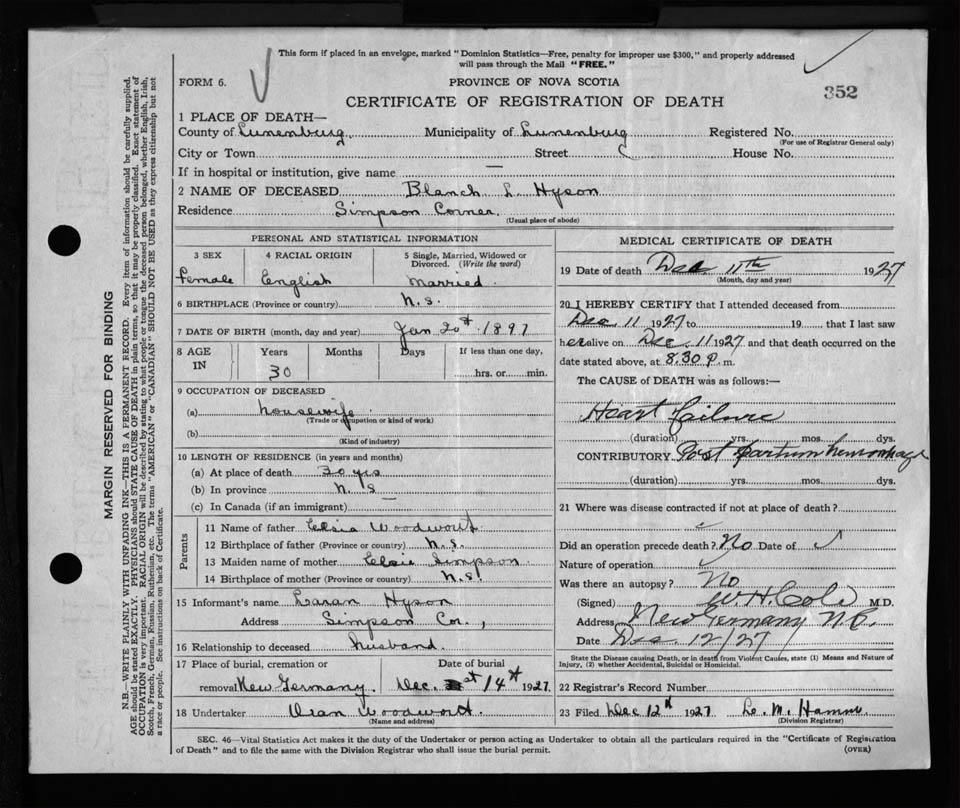 This form if placed in an envelope, marked "Dominion Statistics—Free, penalty for improper use $300," and properly addressed
will pass through the Mail "FREE."
FORM 6.
PROVINCE OF NOVA SCOTIA
352
CERTIFICATE OF REGISTRATION OF DEATH
1 PLACE OF DEATH—
County of Lunenburg Municipality of Lunenburg Registered No.
(For use of Registrar General only)
City or Town Street House No.
If in hospital or institution, give name —
2 NAME OF DECEASED Blanch L. Hyson
Residence Simpson Corner.
(Usual place of abode)
PERSONAL AND STATISTICAL INFORMATION
3 SEX 4 RACIAL ORIGIN 5 Single, Married, Widowed or
Divorced. (Write the word)
Female English Married.
6 BIRTHPLACE (Province or country) N.S.
7 DATE OF BIRTH (month, day and year) Jan 20st 1897
8 AGE IN Years Months Days If less than one day,
30 hrs. or min.
9 OCCUPATION OF DECEASED
(a) housewife.
(Trade or occupation or kind of work)
(b)
(Kind of industry)
10 LENGTH OF RESIDENCE (in years and months)
(a) At place of death 30 yrs
(b) In province N.S
(c) In Canada (if an immigrant) —
Parents
11 Name of father Woodwort
12 Birthplace of father (Province or country) N.S.
13 Maiden name of mother Elsie Simpson
14 Birthplace of mother (Province or country) N.S.
15 Informant's name Hyson
Address Simpson Cor.,
16 Relationship to deceased husband.
17 Place of burial, cremation or Date of burial
removal New Germany. Dec. 14st 1927.
18 Undertaker Woodwort.
(Name and address)
MEDICAL CERTIFICATE OF DEATH
19 Date of death Dec 11th 1927
(Month, day and year)
20 I HEREBY CERTIFY that I attended deceased from
Dec 11 1927 to 19 that I last saw
her alive on Dec. 11 1927 and that death occurred on the
date stated above, at 8.30 P. m.
The CAUSE of DEATH was as follows:—
Heart Failure
(duration) yrs. mos. dys.
CONTRIBUTORY Post partum hemorrhage
(duration) yrs. mos. dys.
21 Where was disease contracted if not at place of death?
Did an operation precede death? No Date of
Nature of operation
Was there an autopsy? No
(Signed) W H Cole M.D.
Address New Germany N.S.
Date Dec 12/27
State the Disease causing Death, or in death from Violent Causes, state (1) Means and Nature of
Injury, (2) whether Accidental, Suicidal or Homicidal.
22 Registrar's Record Number
23 Filed Dec 12th 1927
(Division Registrar)
SEC. 46—Vital Statistics Act makes it the duty of the Undertaker or person acting as Undertaker to obtain all the particulars required in the "Certificate of Registration
of Death" and to file the same with the Division Registrar who shall issue the burial permit.
(OVER)
MARGIN RESERVED FOR BINDING
N.B.—WRITE PLAINLY WITH UNFADING INK—THIS IS A PERMANENT RECORD. Every item of information should be carefully supplied.
AGE should be stated EXACTLY. PHYSICIANS should STATE CAUSE OF DEATH in plain terms, so that it may be properly classified. Exact statement of
OCCUPATION is very important. RACIAL ORIGIN will be described by stating to what people or tongue the deceased person belonged, whether English, Irish,
Scotch, French, German, Russian, Ruthenian, etc. The terms "AMERICAN" or "CANADIAN" SHOULD NOT BE USED as they express citizenship but not
a race or people. See instructions on back of Certificate.